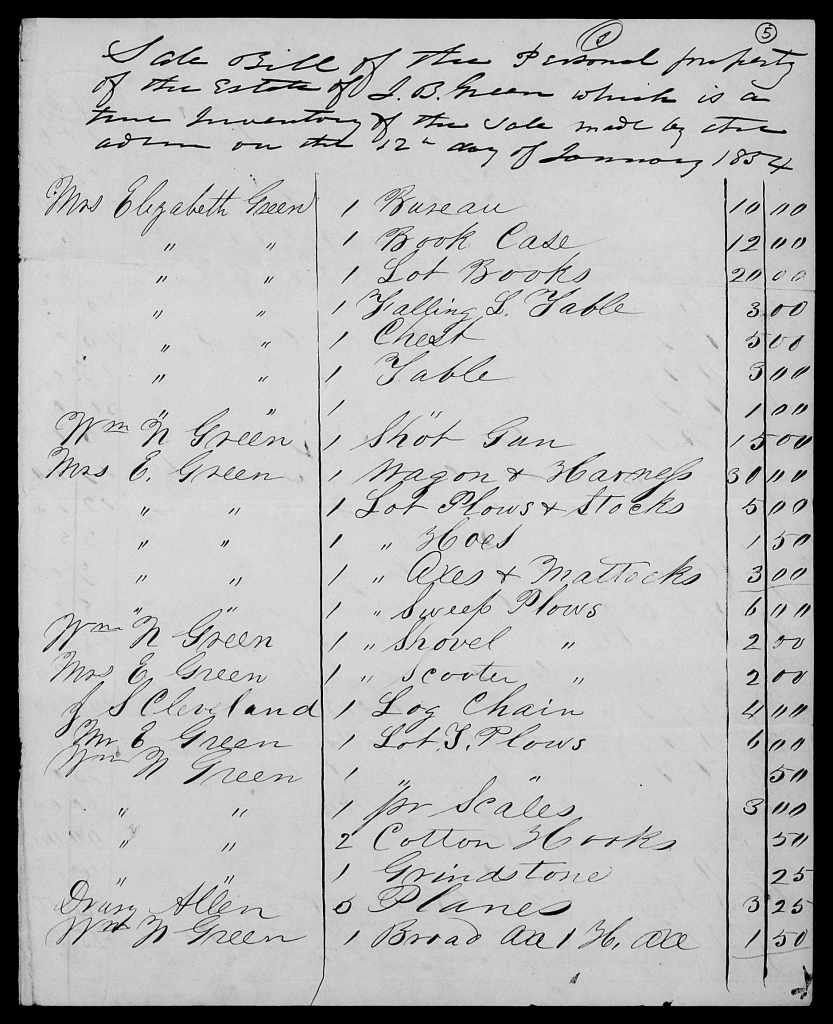 1 5
Sale Bill of the Personal property
of the Estate of J. B. Green which is a
true Inventory of the Sale made by the
admr on the 12th day of January 1854
Mrs Elizabeth Green 1 Bureau 10 00
" " 1 Book Case 12 00
" " 1 Lot Books 20 00
" " 1 Falling L. Table 3 00
" " 1 Chest 5 00
" " 1 Table 3 00
" " 1 " 1 00
Wm N Green 1 Shot Gun 15 00
Mrs E. Green 1 Wagon & Harness 30 00
" " 1 Lot Plows & Stocks 5 00
" " 1 " Hoes 1 50
" " 1 " Axes & Mattocks 3 00
" " 1 " Sweep Plows 6 00
Wm N Green 1 " Shovel " 2 00
Mrs E Green 1 " Scooter " 2 00
J S Cleveland 1 Log Chain 4 00
Mr E Green 1 Lot T. Plows 6 00
Wm N Green 1 " " 50
" " 1 pr Scales 3 00
" " 2 Cotton Hooks 50
" " 1 Grindstone 25
Drury Allen 5 Planes 3 25
Wm N Green 1 Broad Ax 1 H. Axe 1 50